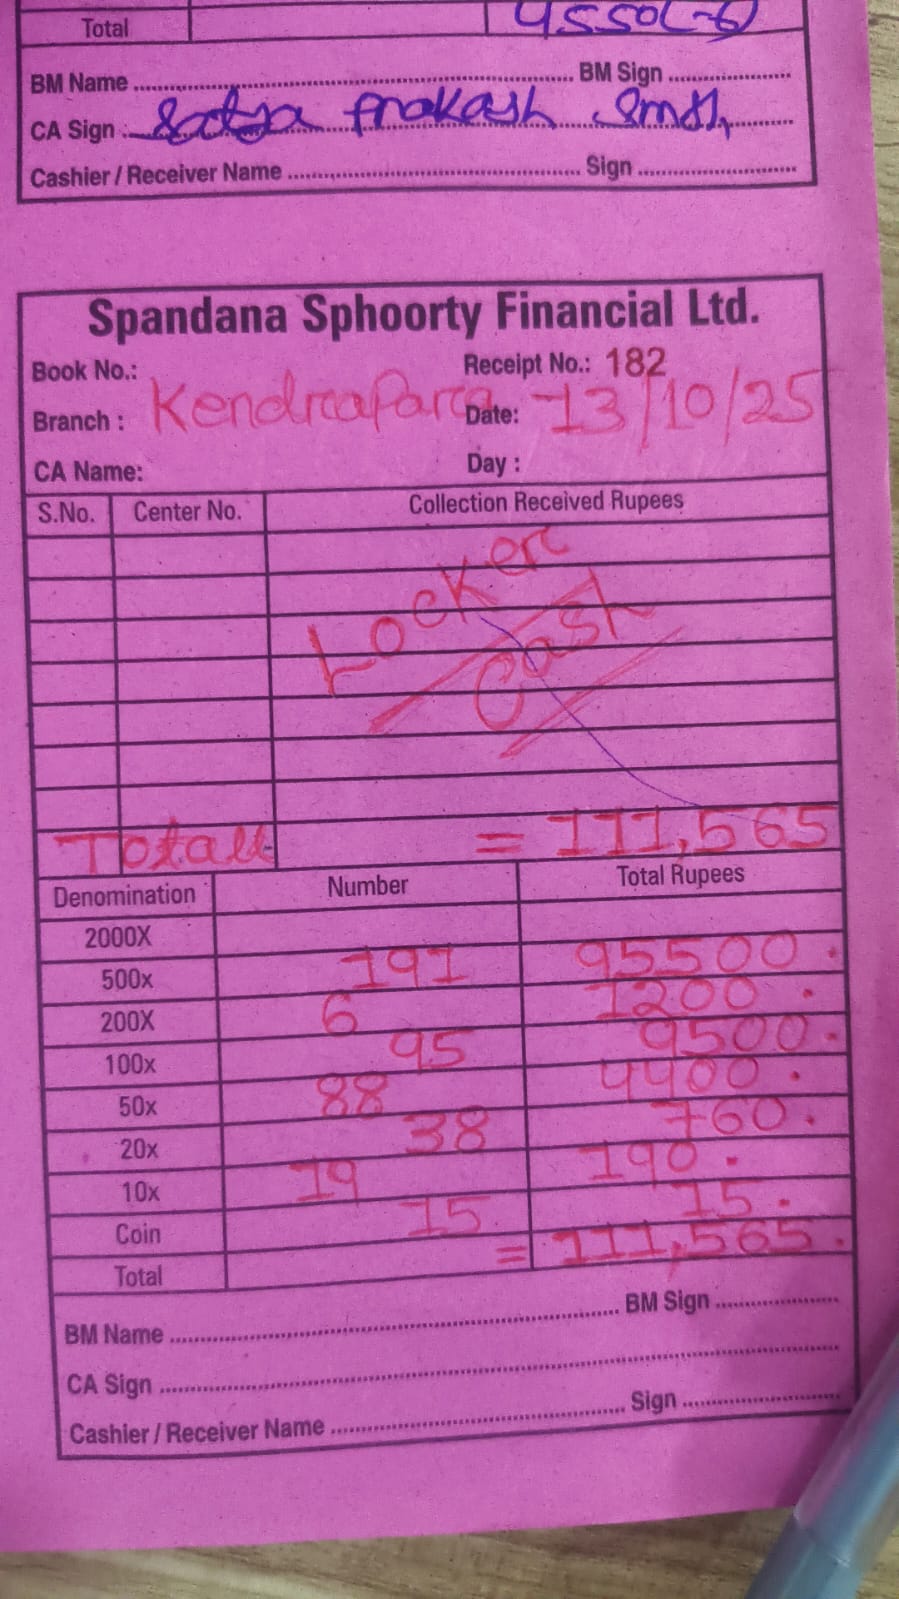 Total 4550(-6)
BM Name BM Sign
CA Sign Satya Prakash
Cashier / Receiver Name Sign
Spandana Sphoorty Financial Ltd.
Book No.: Receipt No.: 182
Branch : Kendrapara Date: 13/10/25
CA Name: Day :
S.No. Center No. Collection Received Rupees
Locker
Cash
Totall = 111,565
Denomination Number Total Rupees
2000X
500x 191 95500
200X 6 1200
100x 95 9500
50x 88 4400
20x 38 760
10x 19 190
Coin 15 15
Total = 111,565
BM Name BM Sign
CA Sign
Cashier / Receiver Name Sign